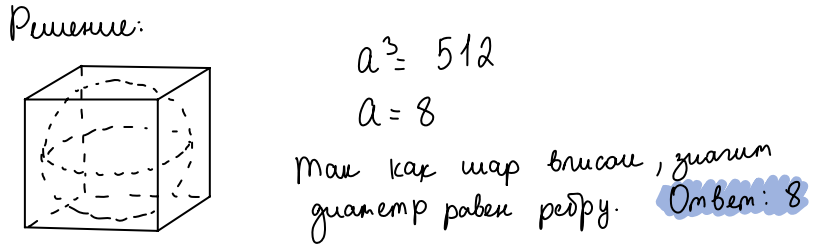 Решение:
a³ = 512
a = 8
Так как шар вписан, значит
диаметр равен ребру. Ответ: 8